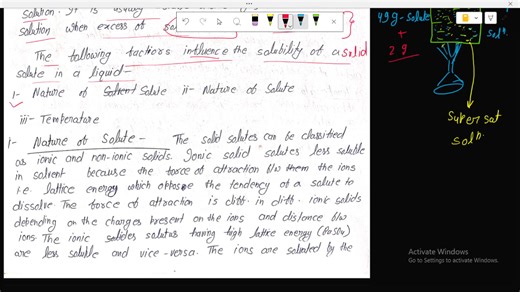 solution. It is usually
solution when excess of
The following factors influence the solubility of a solid
solute in a liquid-
1- Nature of Solute ii- Nature of Solute
iii- Temperature
1- Nature of Solute - The solid solutes can be classified
as ionic and non-ionic solids. Ionic solid solutes less soluble
in solvent because the force of attraction b/w them the ions
i.e. lattice energy which oppose the tendency of a solute to
dissolve The force of attraction is diff. in diff. ionic solids
depending on the changes present on the ions and distance b/w
ions. The ionic solutes having high lattice energy (BaSO4)
are less soluble and vice-versa. The ions are solvated by the
49g-solute
+
2g
Super sat
soln.
Activate Windows
Go to Settings to activate Windows.